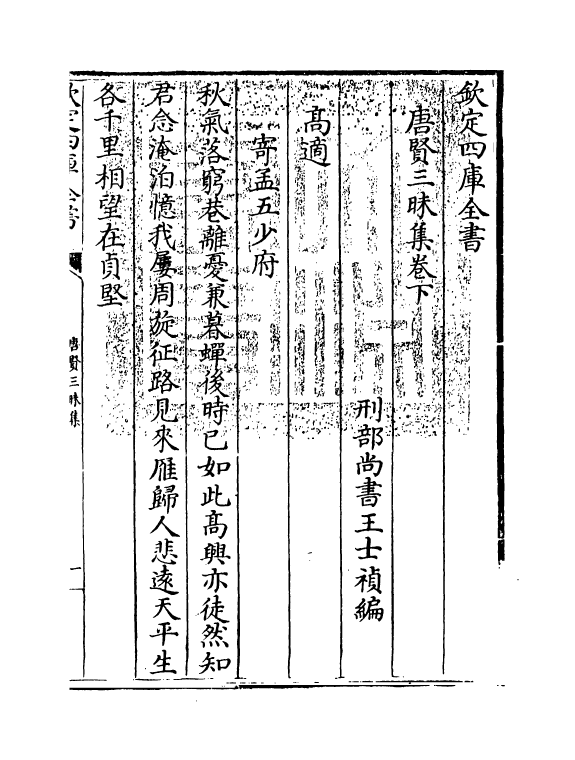 欽定四庫全書
唐賢三昧集卷下
刑部尚書王士禎編
高適
寄孟五少府
秋氣落窮巷離憂兼暮蟬後時已如此高興亦徒然知
君念淹泊憶我屢周旋征路見來雁歸人悲遠天平生
各千里相望在貞堅
欽定四庫全書
唐賢三昧集
一